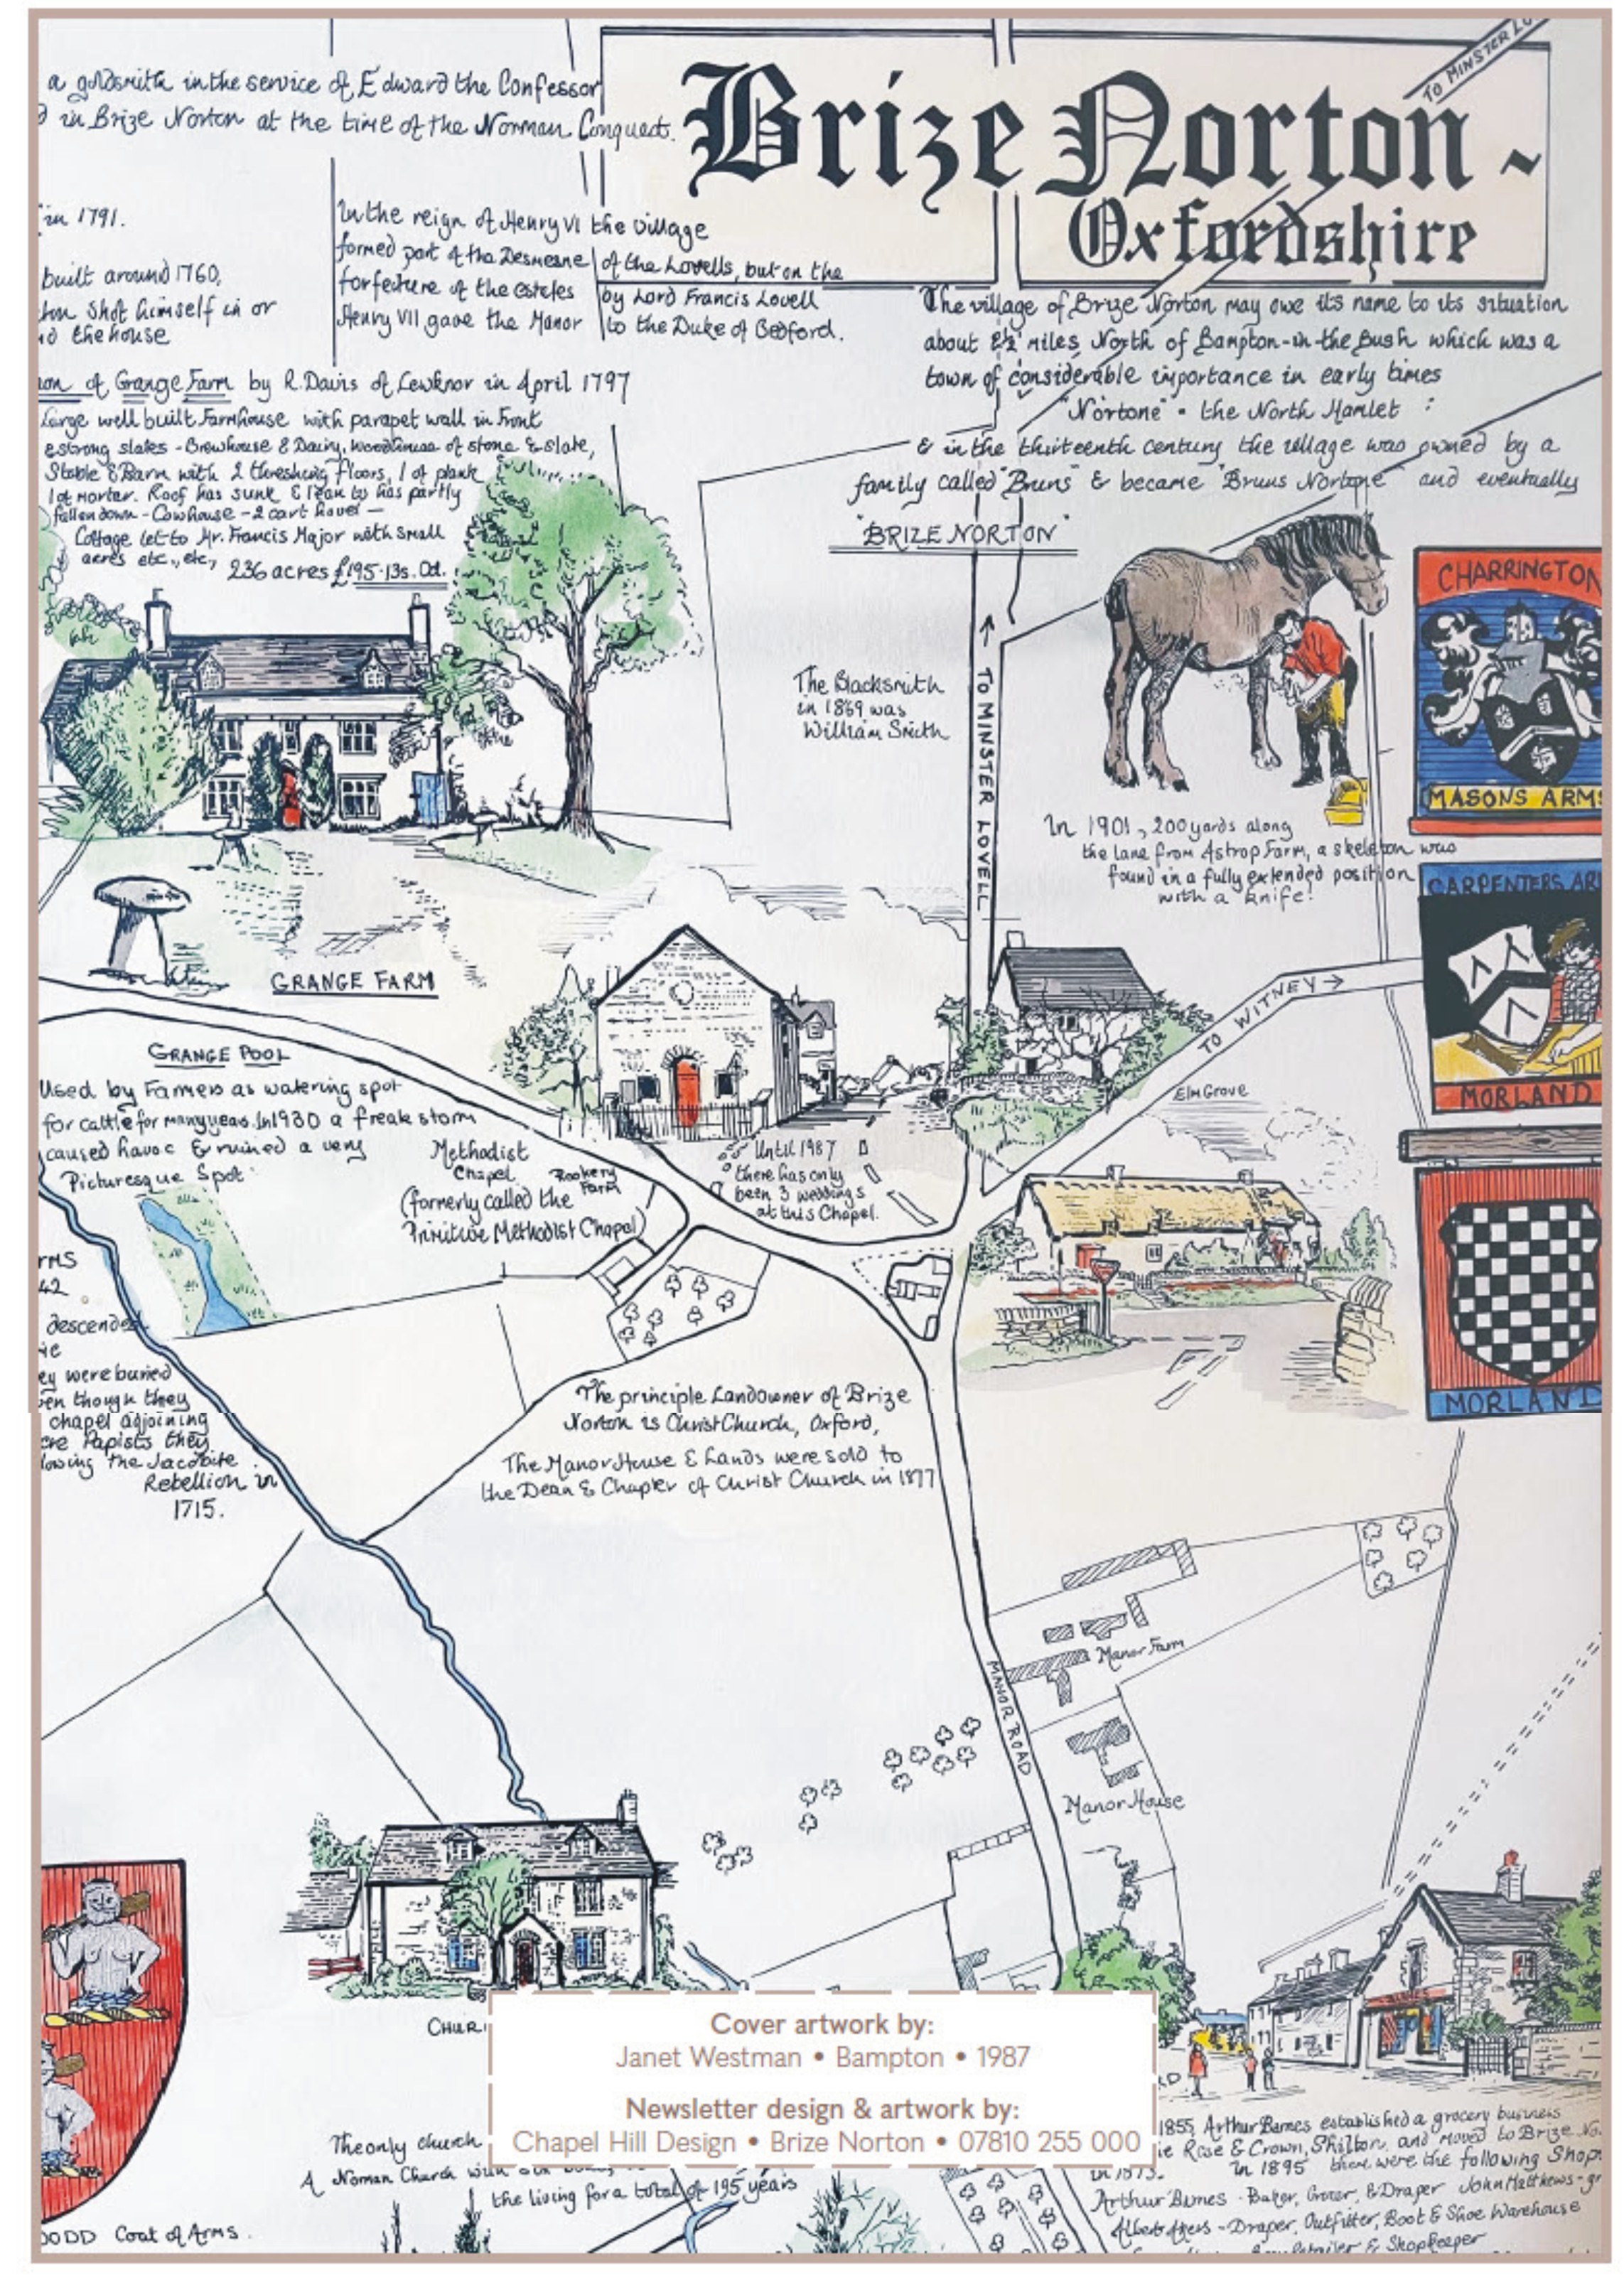 a goldsmith in the service of Edward the Confessor
in Brize Norton at the time of the Norman Conquest.
Brize Norton ~
Oxfordshire
TO MINSTER LO
in 1791.
built around 1760,
shot himself in or
the house
In the reign of Henry VI the village
formed part of the Desmesne of the Lovells, but on the
forfeiture of the estates by Lord Francis Lovell
Henry VII gave the Manor to the Duke of Bedford.
The village of Brize Norton may owe its name to its situation
about 2½ miles North of Bampton-in-the Bush which was a
town of considerable importance in early times
"Nortone" - the North Hamlet :
& in the thirteenth century the village was owned by a
family called "Bruns" & became "Bruns Nortone" and eventually
"BRIZE NORTON"
of Grange Farm by R. Davis of Lewknor in April 1797
Large well built Farmhouse with parapet wall in Front
& strong slates - Brewhouse & Dairy, woodhouse of stone & slate,
Stable & Barn with 2 threshing floors, 1 of plank
1 of mortar. Roof has sunk & lean to has partly
fallen down - Cowhouse - 2 cart hovel -
Cottage let to Mr. Francis Major with small
acres etc., etc, 236 acres £195.13s.0d.
The Blacksmith
in 1869 was
William Smith
TO MINSTER LOVELL
CHARRINGTON
MASONS ARMS
In 1901, 200 yards along
the lane from Astrop Farm, a skeleton was
found in a fully extended position
with a knife!
CARPENTERS AR
MORLAND
MORLAND
GRANGE FARM
TO WITNEY
Elm Grove
GRANGE POOL
Used by Farmers as watering spot
for cattle for many years. In 1930 a freak storm
caused havoc & ruined a very
Picturesque Spot
Methodist
Chapel
(formerly called the
Primitive Methodist Chapel)
Rookery
Farm
Until 1987
there has only
been 3 weddings
at this Chapel.
RMS
42
descended
ey were buried
en though they
chapel adjoining
ere Papists they
lowing the Jacobite
Rebellion in
1715.
The principle Landowner of Brize
Norton is Christ Church, Oxford,
The Manor House & Lands were sold to
the Dean & Chapter of Christ Church in 1877
Manor Farm
MANOR ROAD
Manor House
CHUR
Cover artwork by:
Janet Westman • Bampton • 1987
Newsletter design & artwork by:
Chapel Hill Design • Brize Norton • 07810 255 000
The only church
A Norman Church with
the living for a total of 195 years
ODD Coat of Arms.
1855, Arthur Barnes established a grocery business
Rose & Crown, Shilton, and moved to Brize No
in 1873. In 1895 there were the following Shop
Arthur Barnes - Baker, Grocer, & Draper John Matthews - gr
Albert Akers - Draper, Outfitter, Boot & Shoe Warehouse
Retailer & Shopkeeper